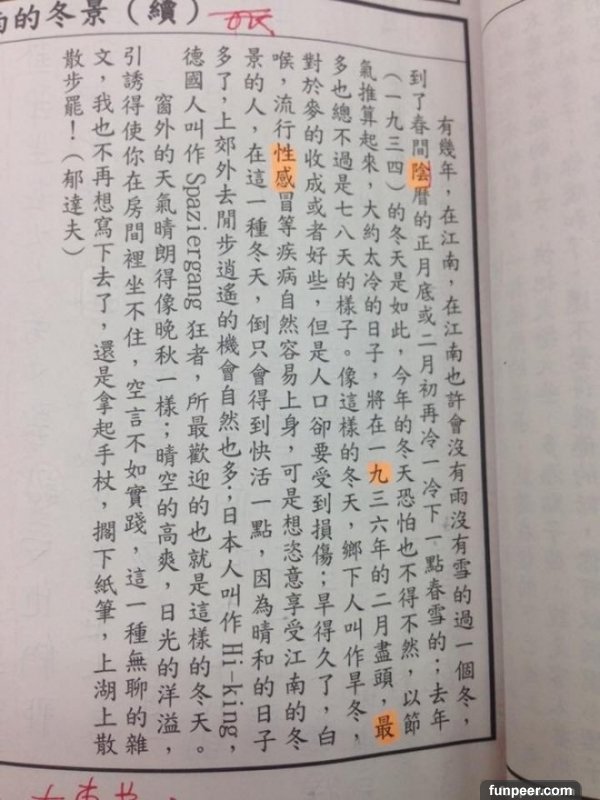 的冬景（續）
有幾年，在江南，在江南也許會沒有雨沒有雪的過一個冬，
到了春間陰曆的正月底或二月初再冷一冷下一點春雪的；去年
（一九三四）的冬天是如此，今年的冬天恐怕也不得不然，以節
氣推算起來，大約太冷的日子，將在一九三六年的二月盡頭，最
多也總不過是七八天的樣子。像這樣的冬天，鄉下人叫作旱冬，
對於麥的收成或者好些，但是人口卻要受到損傷；旱得久了，白
喉，流行性感冒等疾病自然容易上身，可是想恣意享受江南的冬
景的人，在這一種冬天，倒只會得到快活一點，因為晴和的日子
多了，上郊外去閒步逍遙的機會自然也多；日本人叫作 Hi-king，
德國人叫作 Spaziergang 狂者，所最歡迎的也就是這樣的冬天。
窗外的天氣晴朗得像晚秋一樣；晴空的高爽，日光的洋溢，
引誘得使你在房間裡坐不住，空言不如實踐，這一種無聊的雜
文，我也不再想寫下去了，還是拿起手杖，擱下紙筆，上湖上散
散步罷！（郁達夫）
funpeer.com